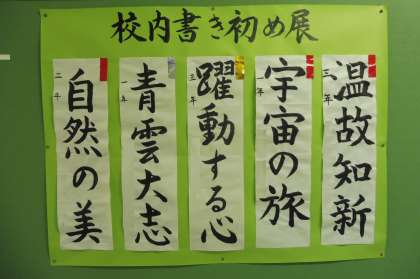 校内書き初め展
三年
温故知新
一年
宇宙の旅
三年
躍動する心
一年
青雲大志
二年
自然の美